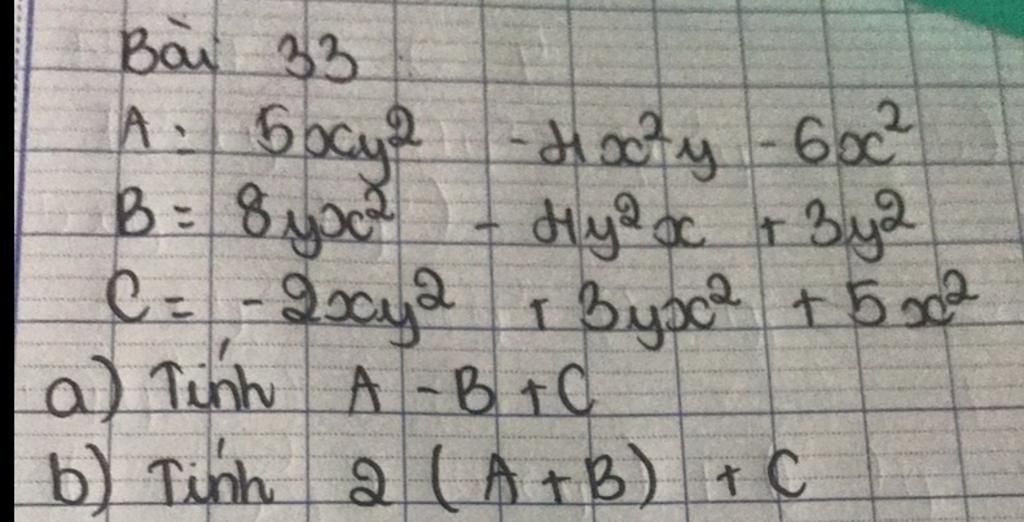 Bài 33
A = 5xy² - 4x²y - 6x²
B = 8yx² - 4y²x + 3y²
C = -2xy² + 3yx² + 5x²
a) Tính A - B + C
b) Tính 2 (A + B) + C